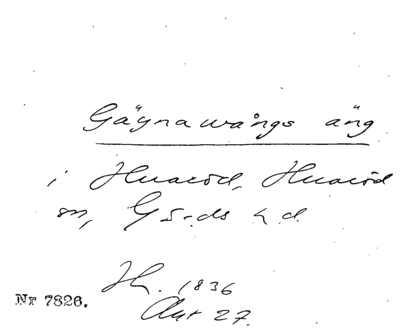 Gäynawångs äng
i Huaröd, Huaröd
sn, Gärds hd.
1836
Akt 27.
Nr 7826.